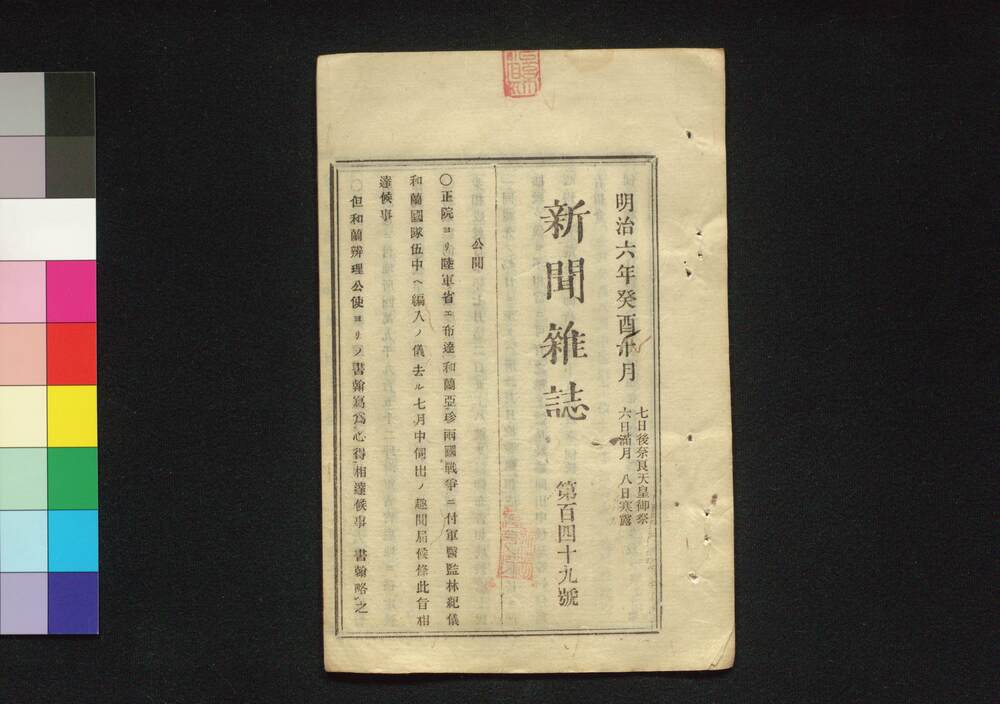 明治六年癸酉十月
七日後奈良天皇御祭
六日滿月　八日寒露
新聞雜誌
第百四十九號
公聞
〇正院ヨリ陸軍省ヱ布達和蘭亞珍兩國戰爭ニ付軍醫監林紀儀
和蘭國隊伍中ヘ編入ノ儀去ル七月中伺出ノ趣聞屆候條此旨相
達候事
〇但和蘭辨理公使ヨリノ書翰寫爲心得相達候事　書翰略之